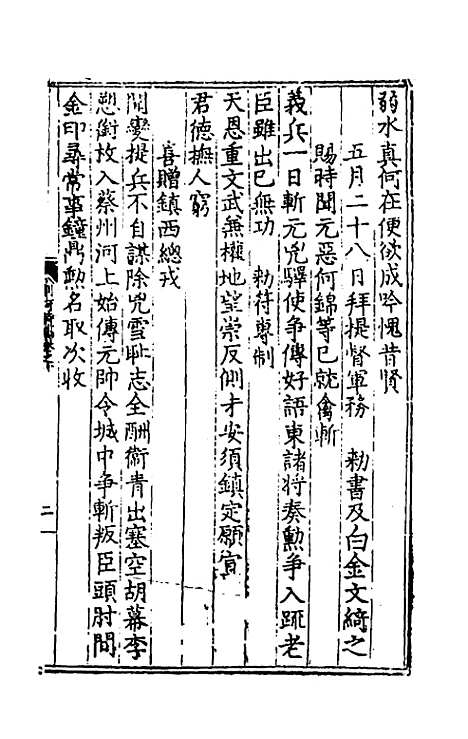 弱水真何在便欲成吟愧昔賢
五月二十八日拜提督軍務　勑書及白金文綺之
賜時聞元惡何錦等已就禽斬
義兵一日斬元兇驛使爭傳好語東諸将奏勲爭入疏老
臣雖出已無功　勑符專制
天恩重文武無權地望崇反側才安須鎮定願宣
君德撫人窮
喜贈鎮西總戎
聞變提兵不自謀除兇雪耻志全酬衛青出塞空胡幕李
愬銜枚入蔡州河上始傳元帥令城中爭斬叛臣頭肘間
金印尋常事鐘鼎勲名取次收
二